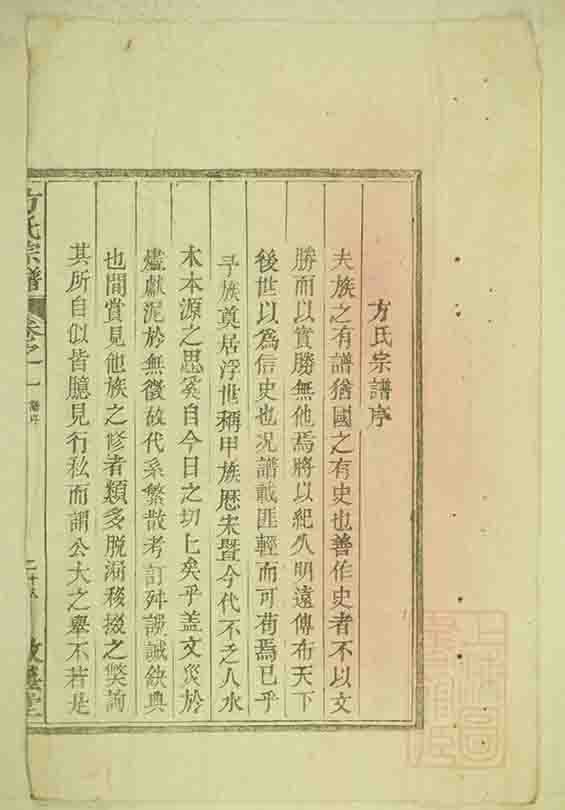 方氏宗譜序
夫族之有譜猶國之有史也善作史者不以文
勝而以實勝無他焉將以紀久明遠傳布天下
後世以為信史也况譜載匪輕而可苟焉已乎
予族奠居浮世稱甲族歷宋暨今代不乏人水
木本源之思奚自今日之切匕矣乎盖文災於
燼獻泥於無徵故代系繁散考訂舛謬誠缺典
也間嘗見他族之修者類多脫漏移掇之獘詢
其所自似皆臆見行私而謂公大之舉不若是
方氏宗譜 卷之一 譜序